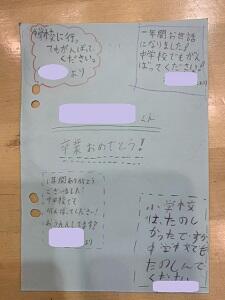 中学校に行っ
てもがんばって
ください。
より
一年間お世話
になりました!
中学校でもが
ばってください!
より
くん
卒業おめでとう!
1年間ありがとう
ございました!
中学校でも
がんばってください!
おうえんしてます!
より
小学校
はたのし
かったですか
中学校でも
たのしんで
ください